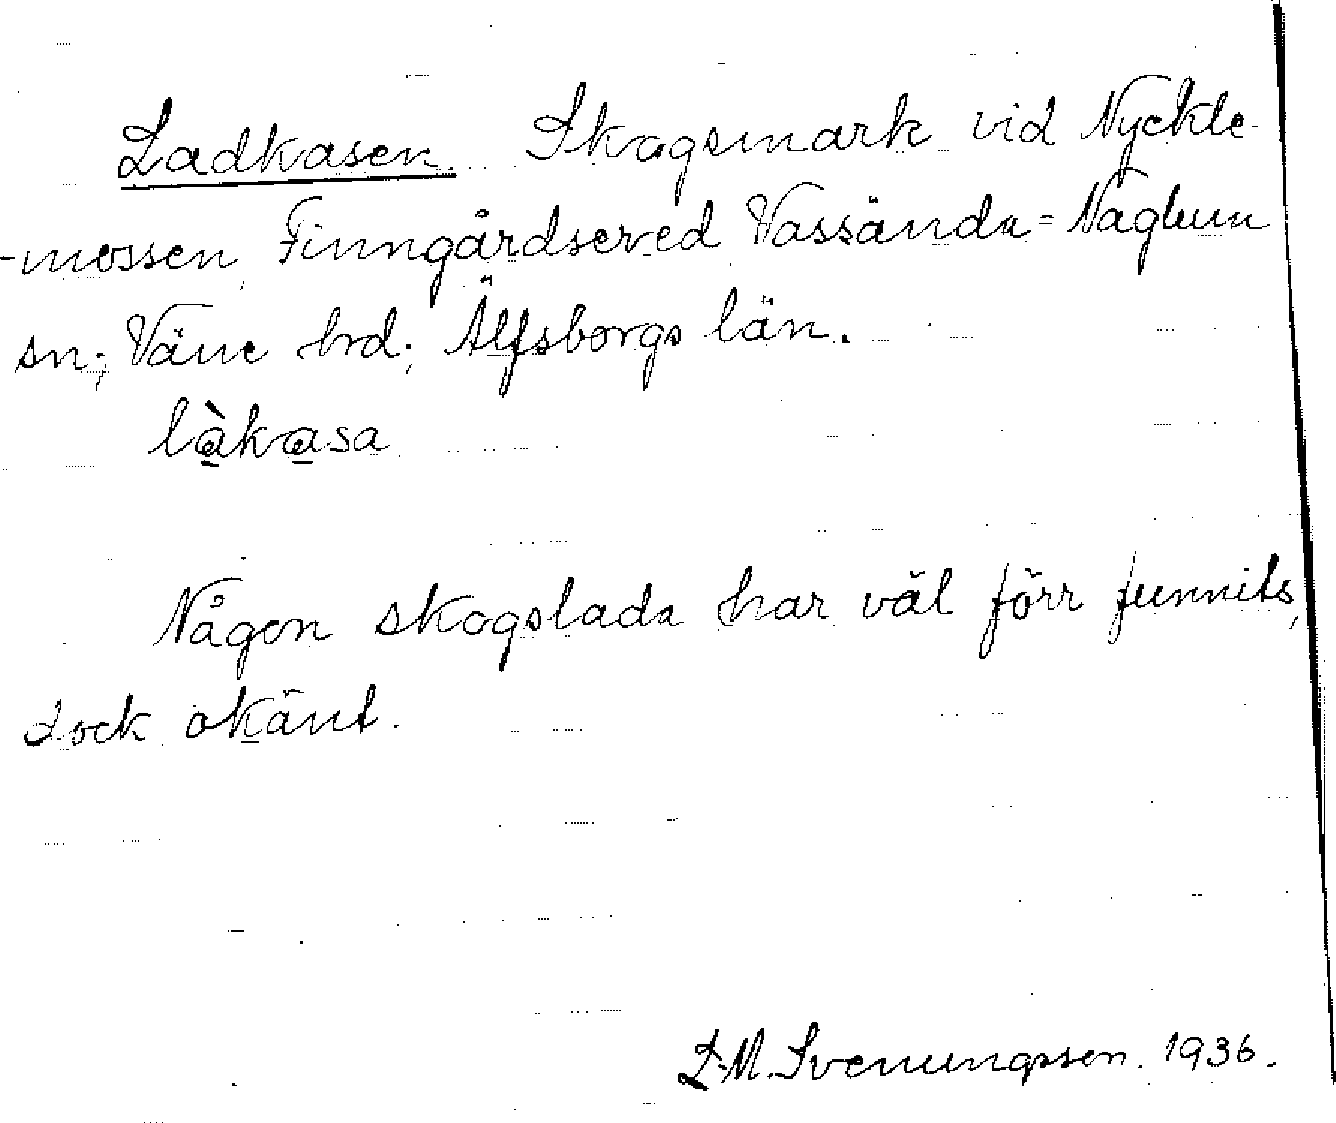 Ladkasen. Skogsmark vid Nyckle-
-mossen, Finngårdsered Vassända=Naglum
sn; Väne hrd; Älfsborgs län.
làkasa
Någon skogslada har väl förr funnits,
dock okänt.
L.M. Svenungsson. 1936.